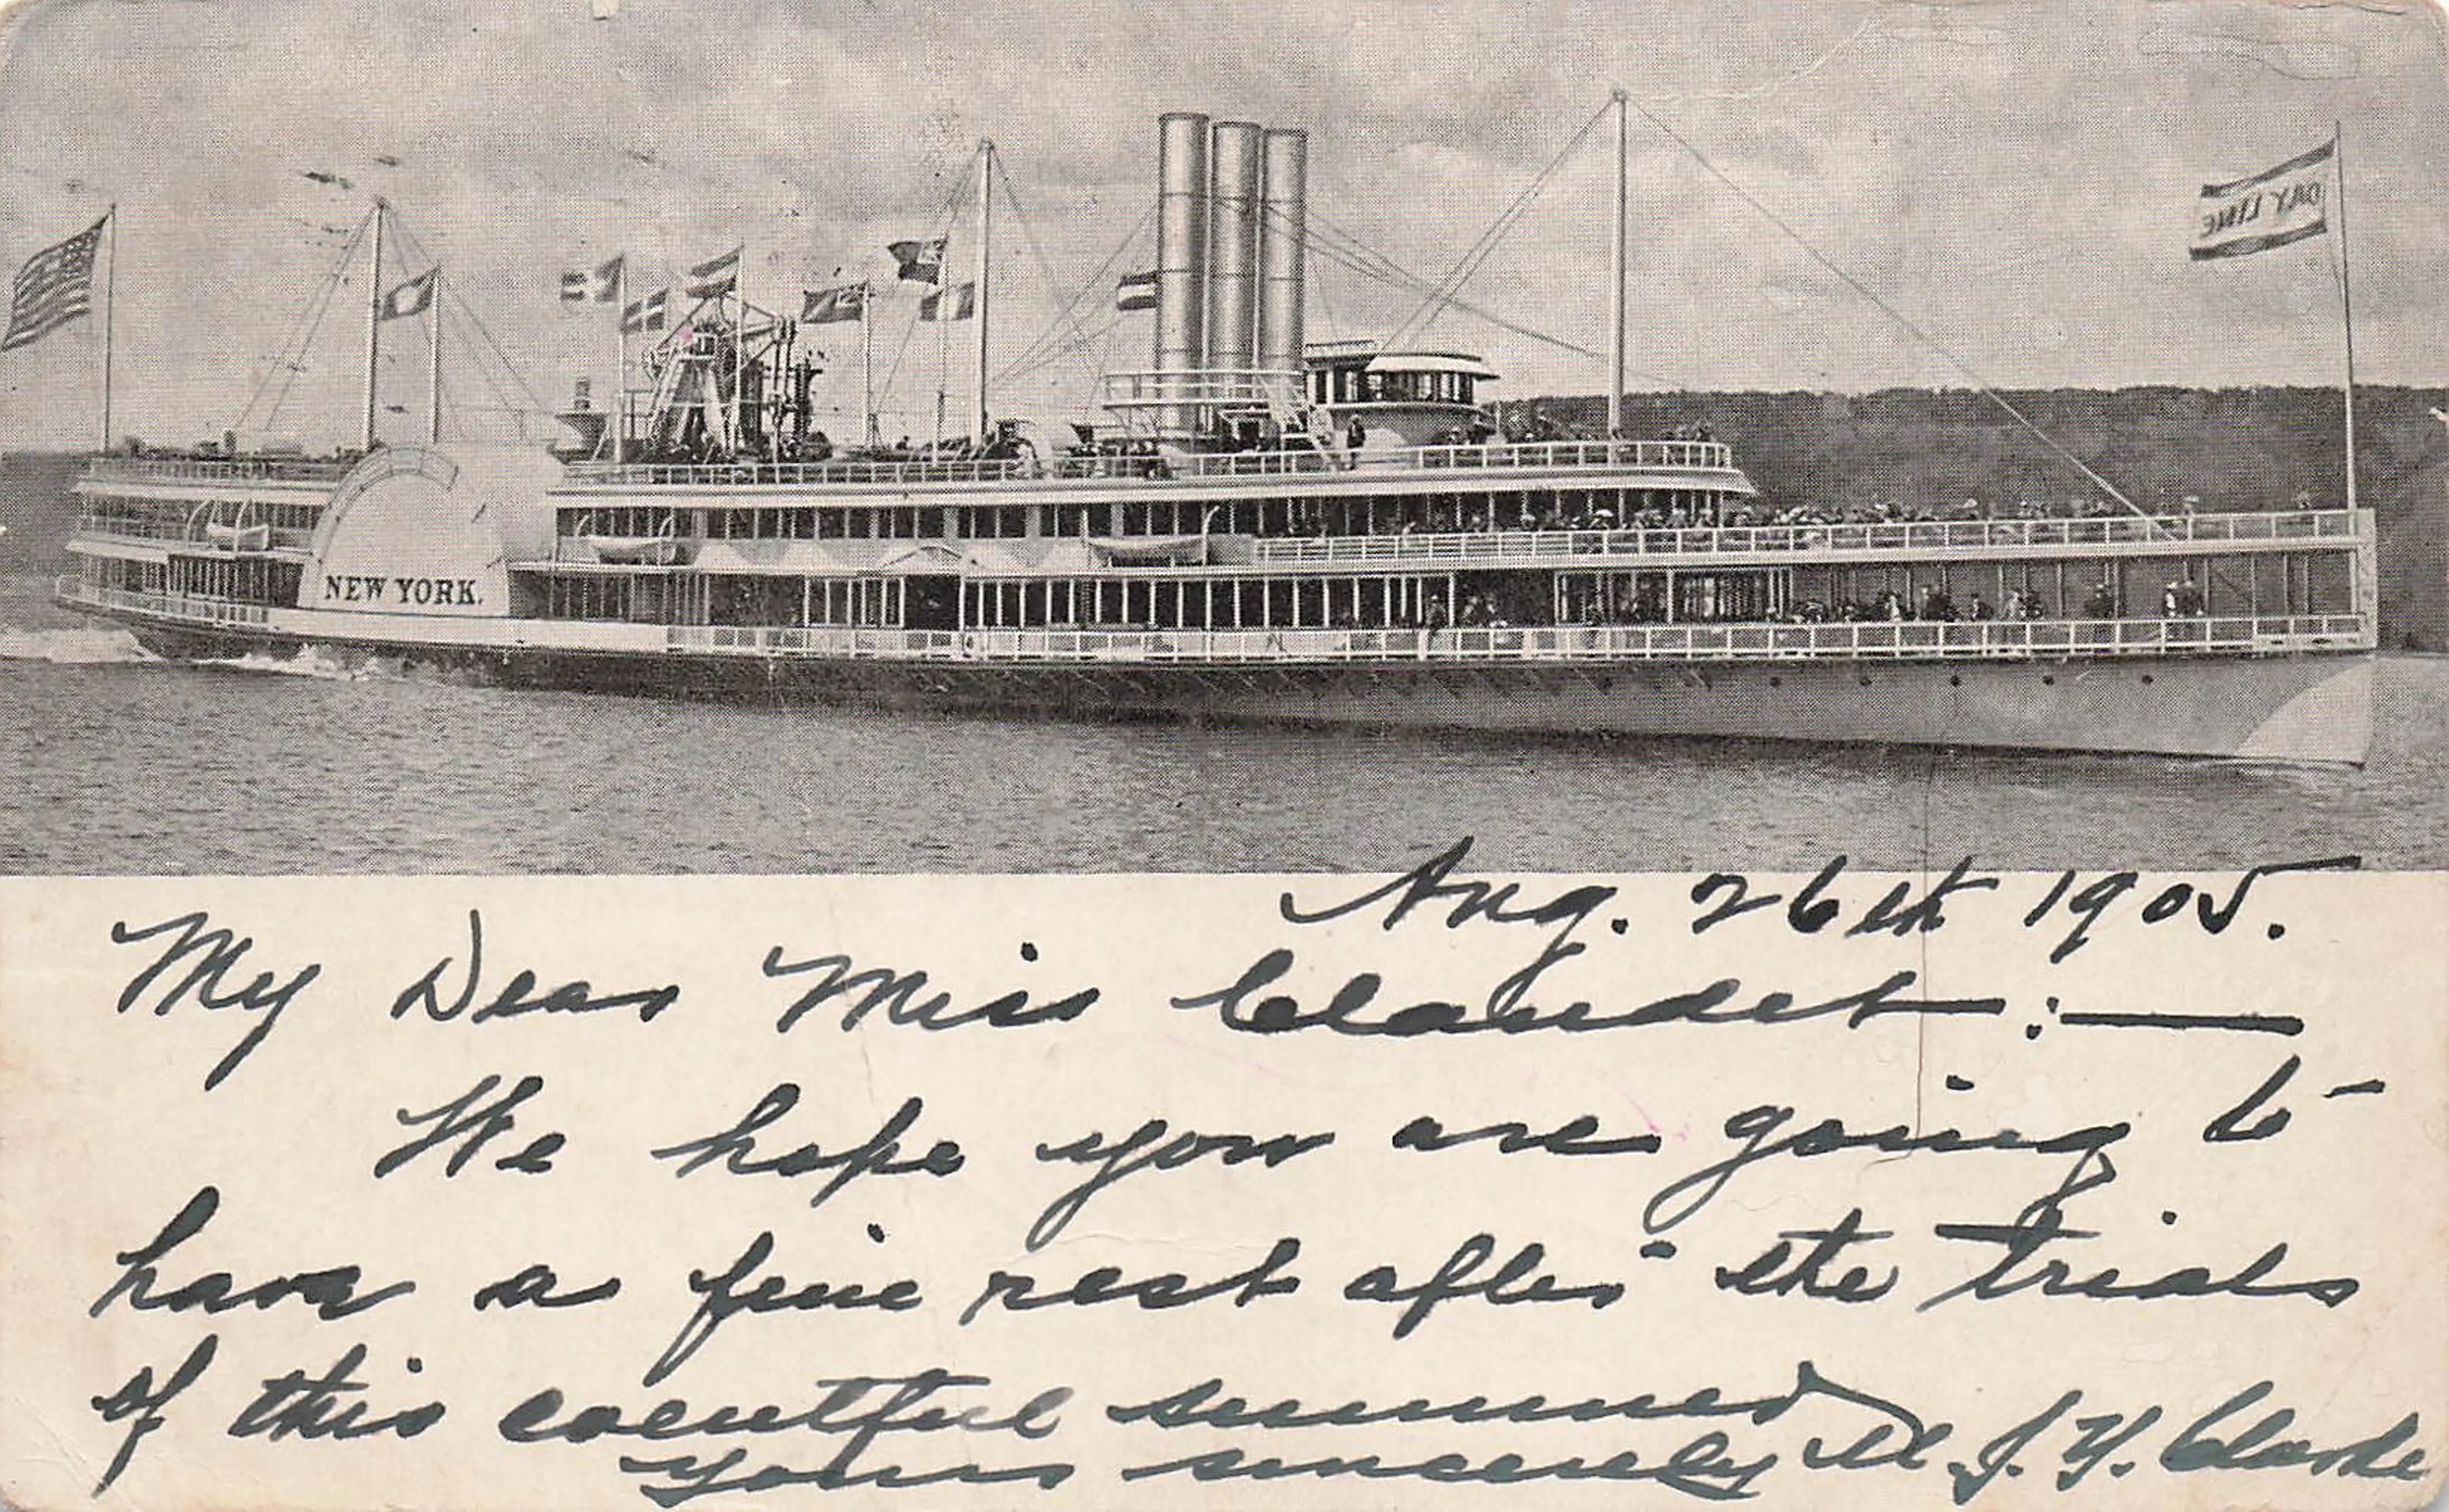 DAY LINE
NEW YORK.
Aug. 26th 1905.
My Dear Miss Claudet:—
We hope you are going to
have a fine rest after the trials
of this eventful summer
yours sincerely M. J. Y. Clarke